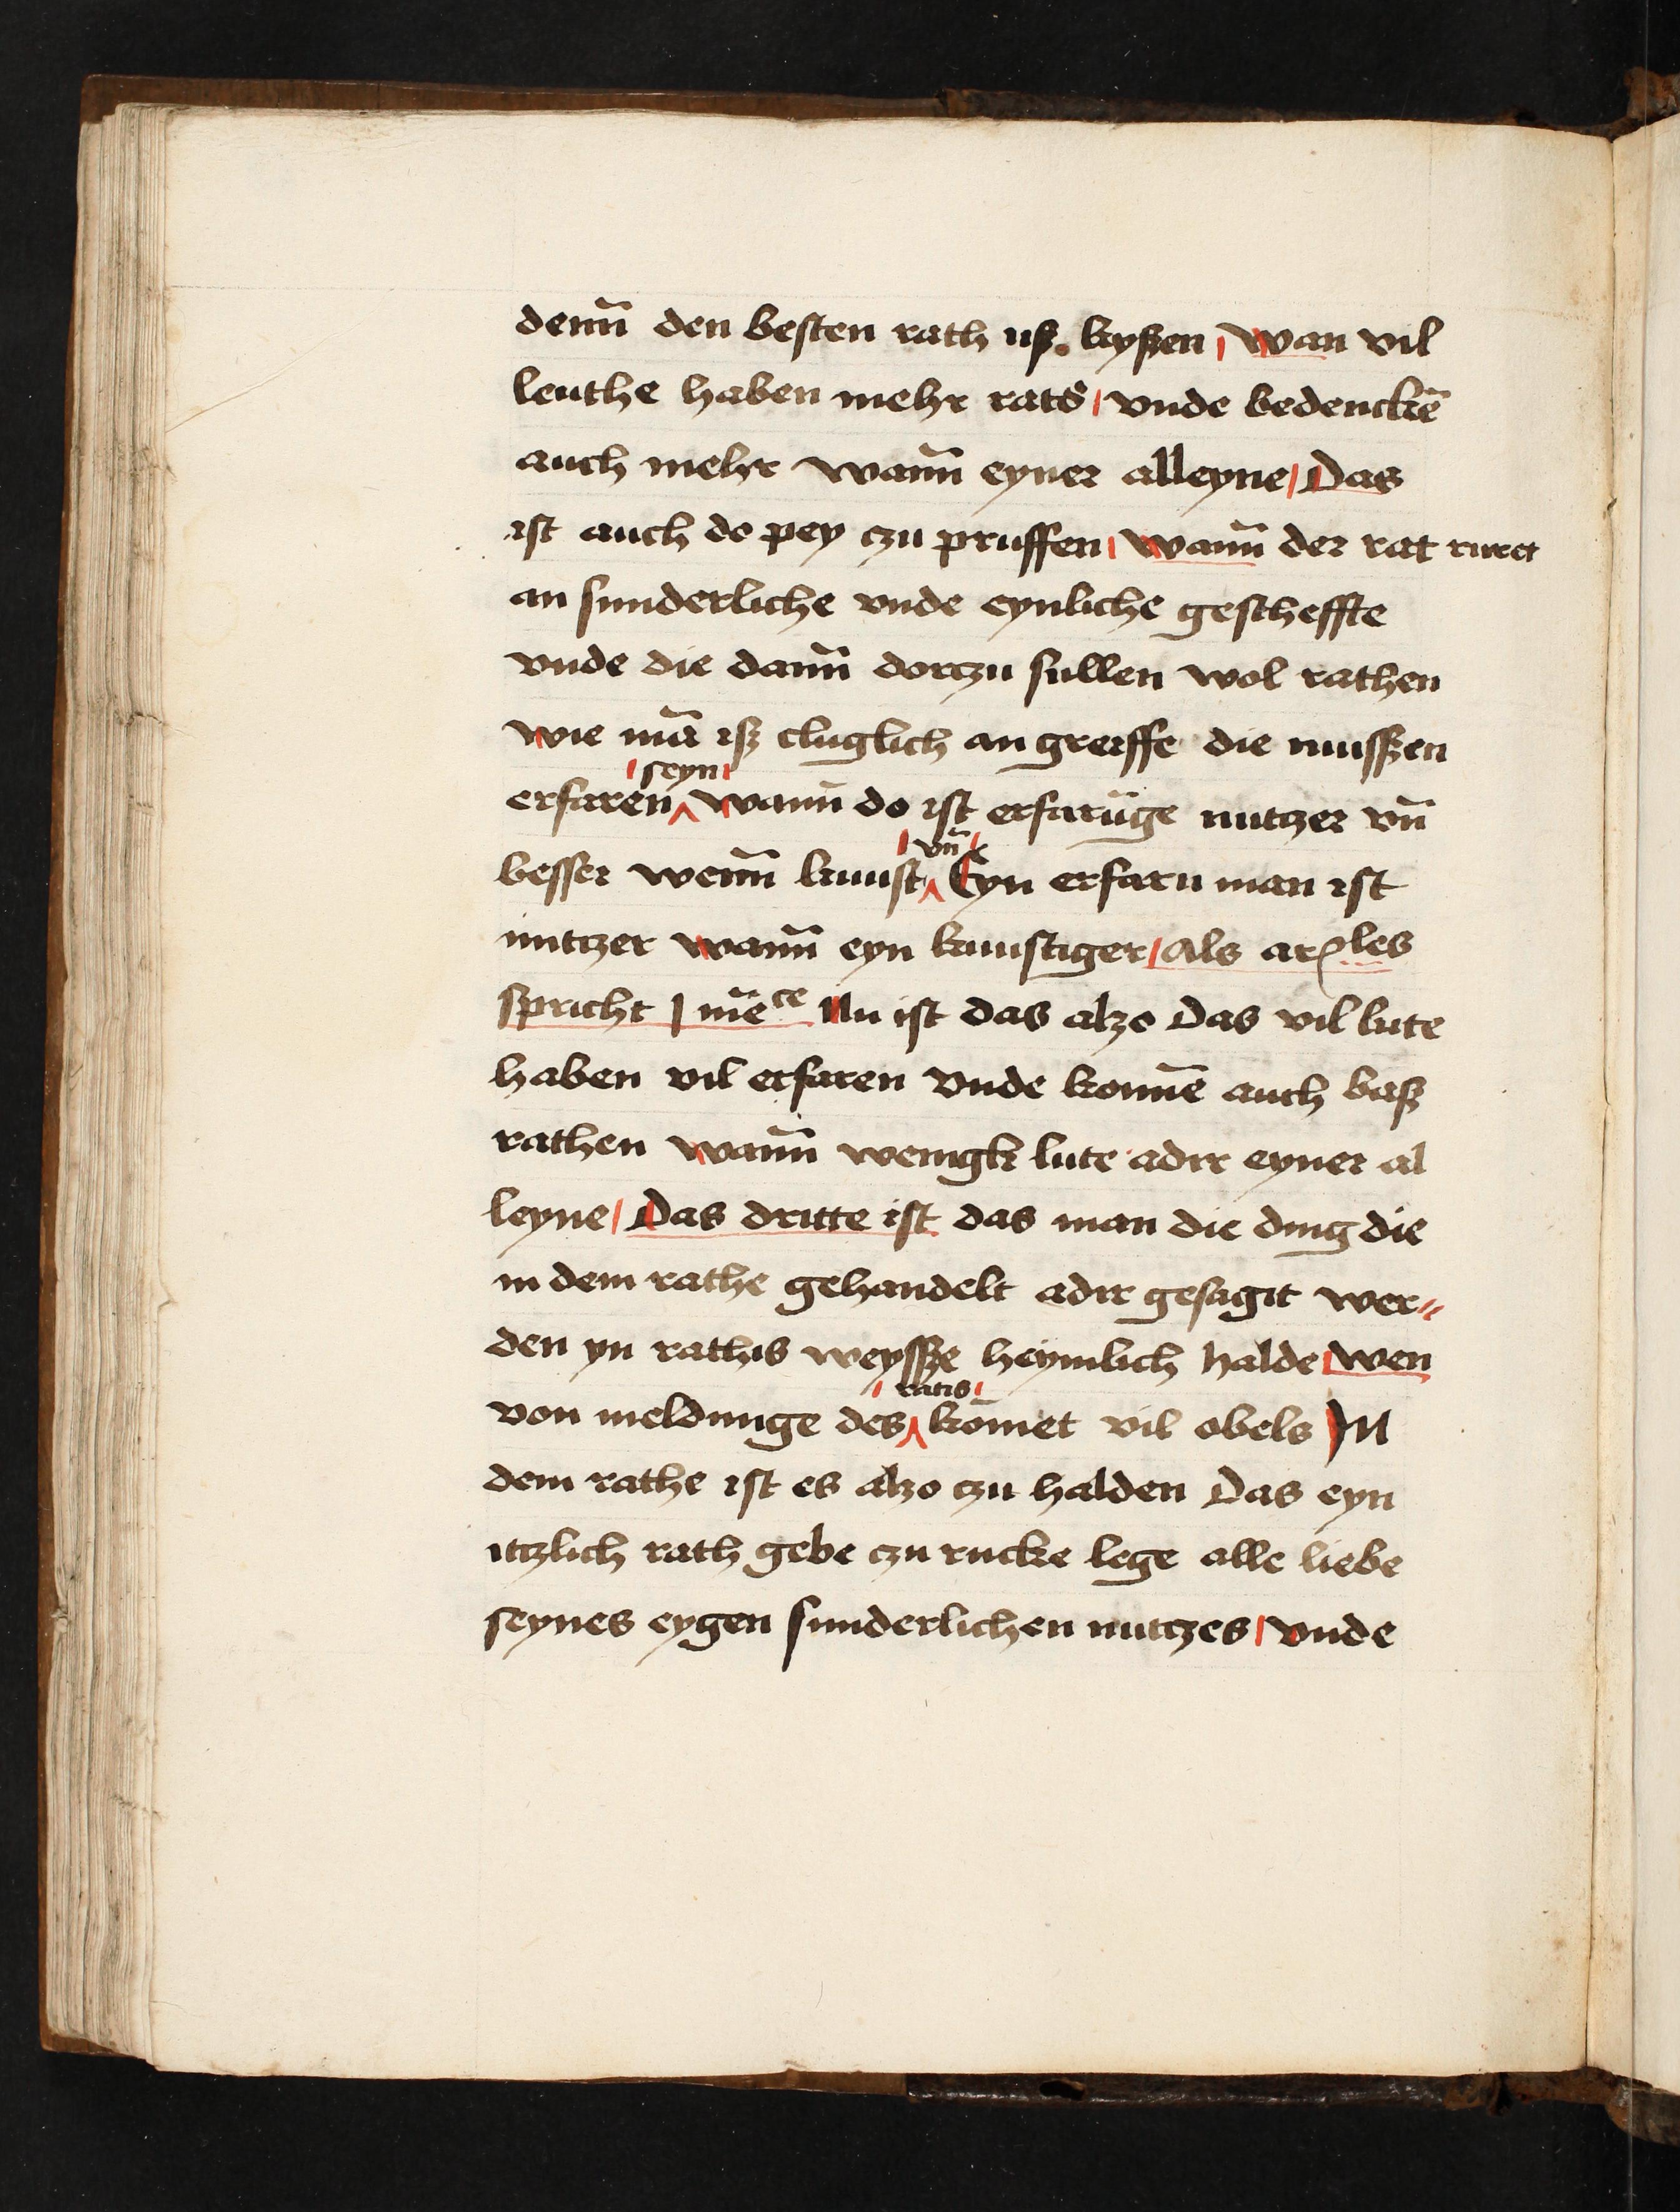 den̄n den besten rath uß kyßen / wan vil
leuthe haben mehr rats / vnde bedenckē
auch mehr wan̄n eyner alleyne / Das
ist auch do pey czu pruffen / wan̄n der rat ruret
an sunderliche vnde eynliche gescheffte
vnde die dan̄n dorczu sullen wol rathen
wie mā iß cluglich an greiffe die mussßen
seyn
erfaren wan̄n do ist erfarūge nutczer vn̄
vn̄
besser wen̄n kunst Eyn erfarn man ist
nutczer wan̄n eyn kunstiger / Als arꝭles
spricht j mēce Nu ist das alzo Das vil lute
haben vil erfaren vnde konnē auch baß
rathen wan̄n wenigk lute adir eyner al
leyne / Das dritte ist das man die ding die
in dem rathe gehandelt adir gesagit wer⸗
den yn rathis weyssße heymlich halde / wen
ratis
von meldunge des kōmet vil obels In
dem rathe ist es alzo czu halden Das eyn
itczlich rath gebe czu rucke lege alle liebe
seynes eygen sunderlichen nutczes / vnde